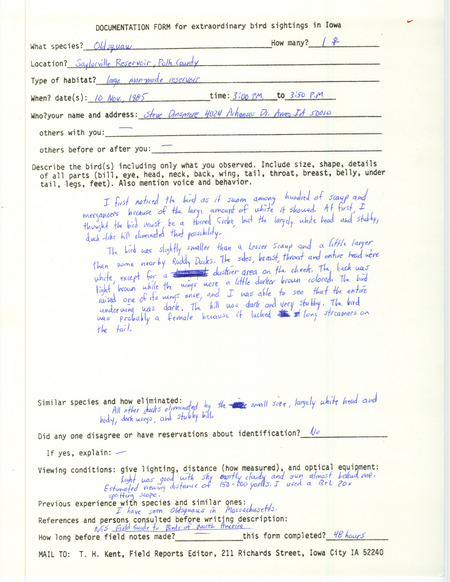 DOCUMENTATION FORM for extraordinary bird sightings in Iowa
What species? Oldsquaw How many? 1 ♀
Location? Saylorville Reservoir, Polk County
Type of habitat? large man-made reservoir
When? date(s): 10 Nov, 1985 time: 3:00 P.M. to 3:50 P.M
Who?your name and address: Steve Dinsmore 4024 Arkansas Dr. Ames IA 50010
others with you: —
others before or after you: —
Describe the bird(s) including only what you observed. Include size, shape, details
of all parts (bill, eye, head, neck, back, wing, tail, throat, breast, belly, under
tail, legs, feet). Also mention voice and behavior.
I first noticed the bird as it swam among hundred of scaup and
mergansers because of the large amount of white it showed. At first, I
thought the bird must be a Horned Grebe, but the largely white head and stubby,
duck-like bill eliminated that possibility.
The bird was slightly smaller than a Lesser Scaup and a little larger
than some nearby Ruddy Ducks. The sides, breast, throat and entire head were
white, except for a duskier area on the cheek. The back was
light brown while the wings were a little darker brown colored. The bird
raised one of its wings once, and I was able to see that the entire
underwing was dark. The bill was dark and very stubby. The bird
was probably a female because it lacked long streamers on
the tail.
Similar species and how eliminated:
All other ducks eliminated by the small size, largely white head and
body, dark wings, and stubby bill.
Did any one disagree or have reservations about identification? No
If yes, explain: —
Viewing conditions: give lighting, distance (how measured), and optical equipment:
Light was good with sky mostly cloudy and sun almost behind me.
Estimated viewing distance of 150-200 yards. I used a B+L 20x
spotting scope.
Previous experience with species and similar ones:
I have seen Oldsquaws in Massachusetts.
References and persons consulted before writing description:
NGS Field Guide to Birds of North America
How long before field notes made? this form completed? 48 hours
MAIL TO: T. H. Kent, Field Reports Editor, 211 Richards Street, Iowa City IA 52240